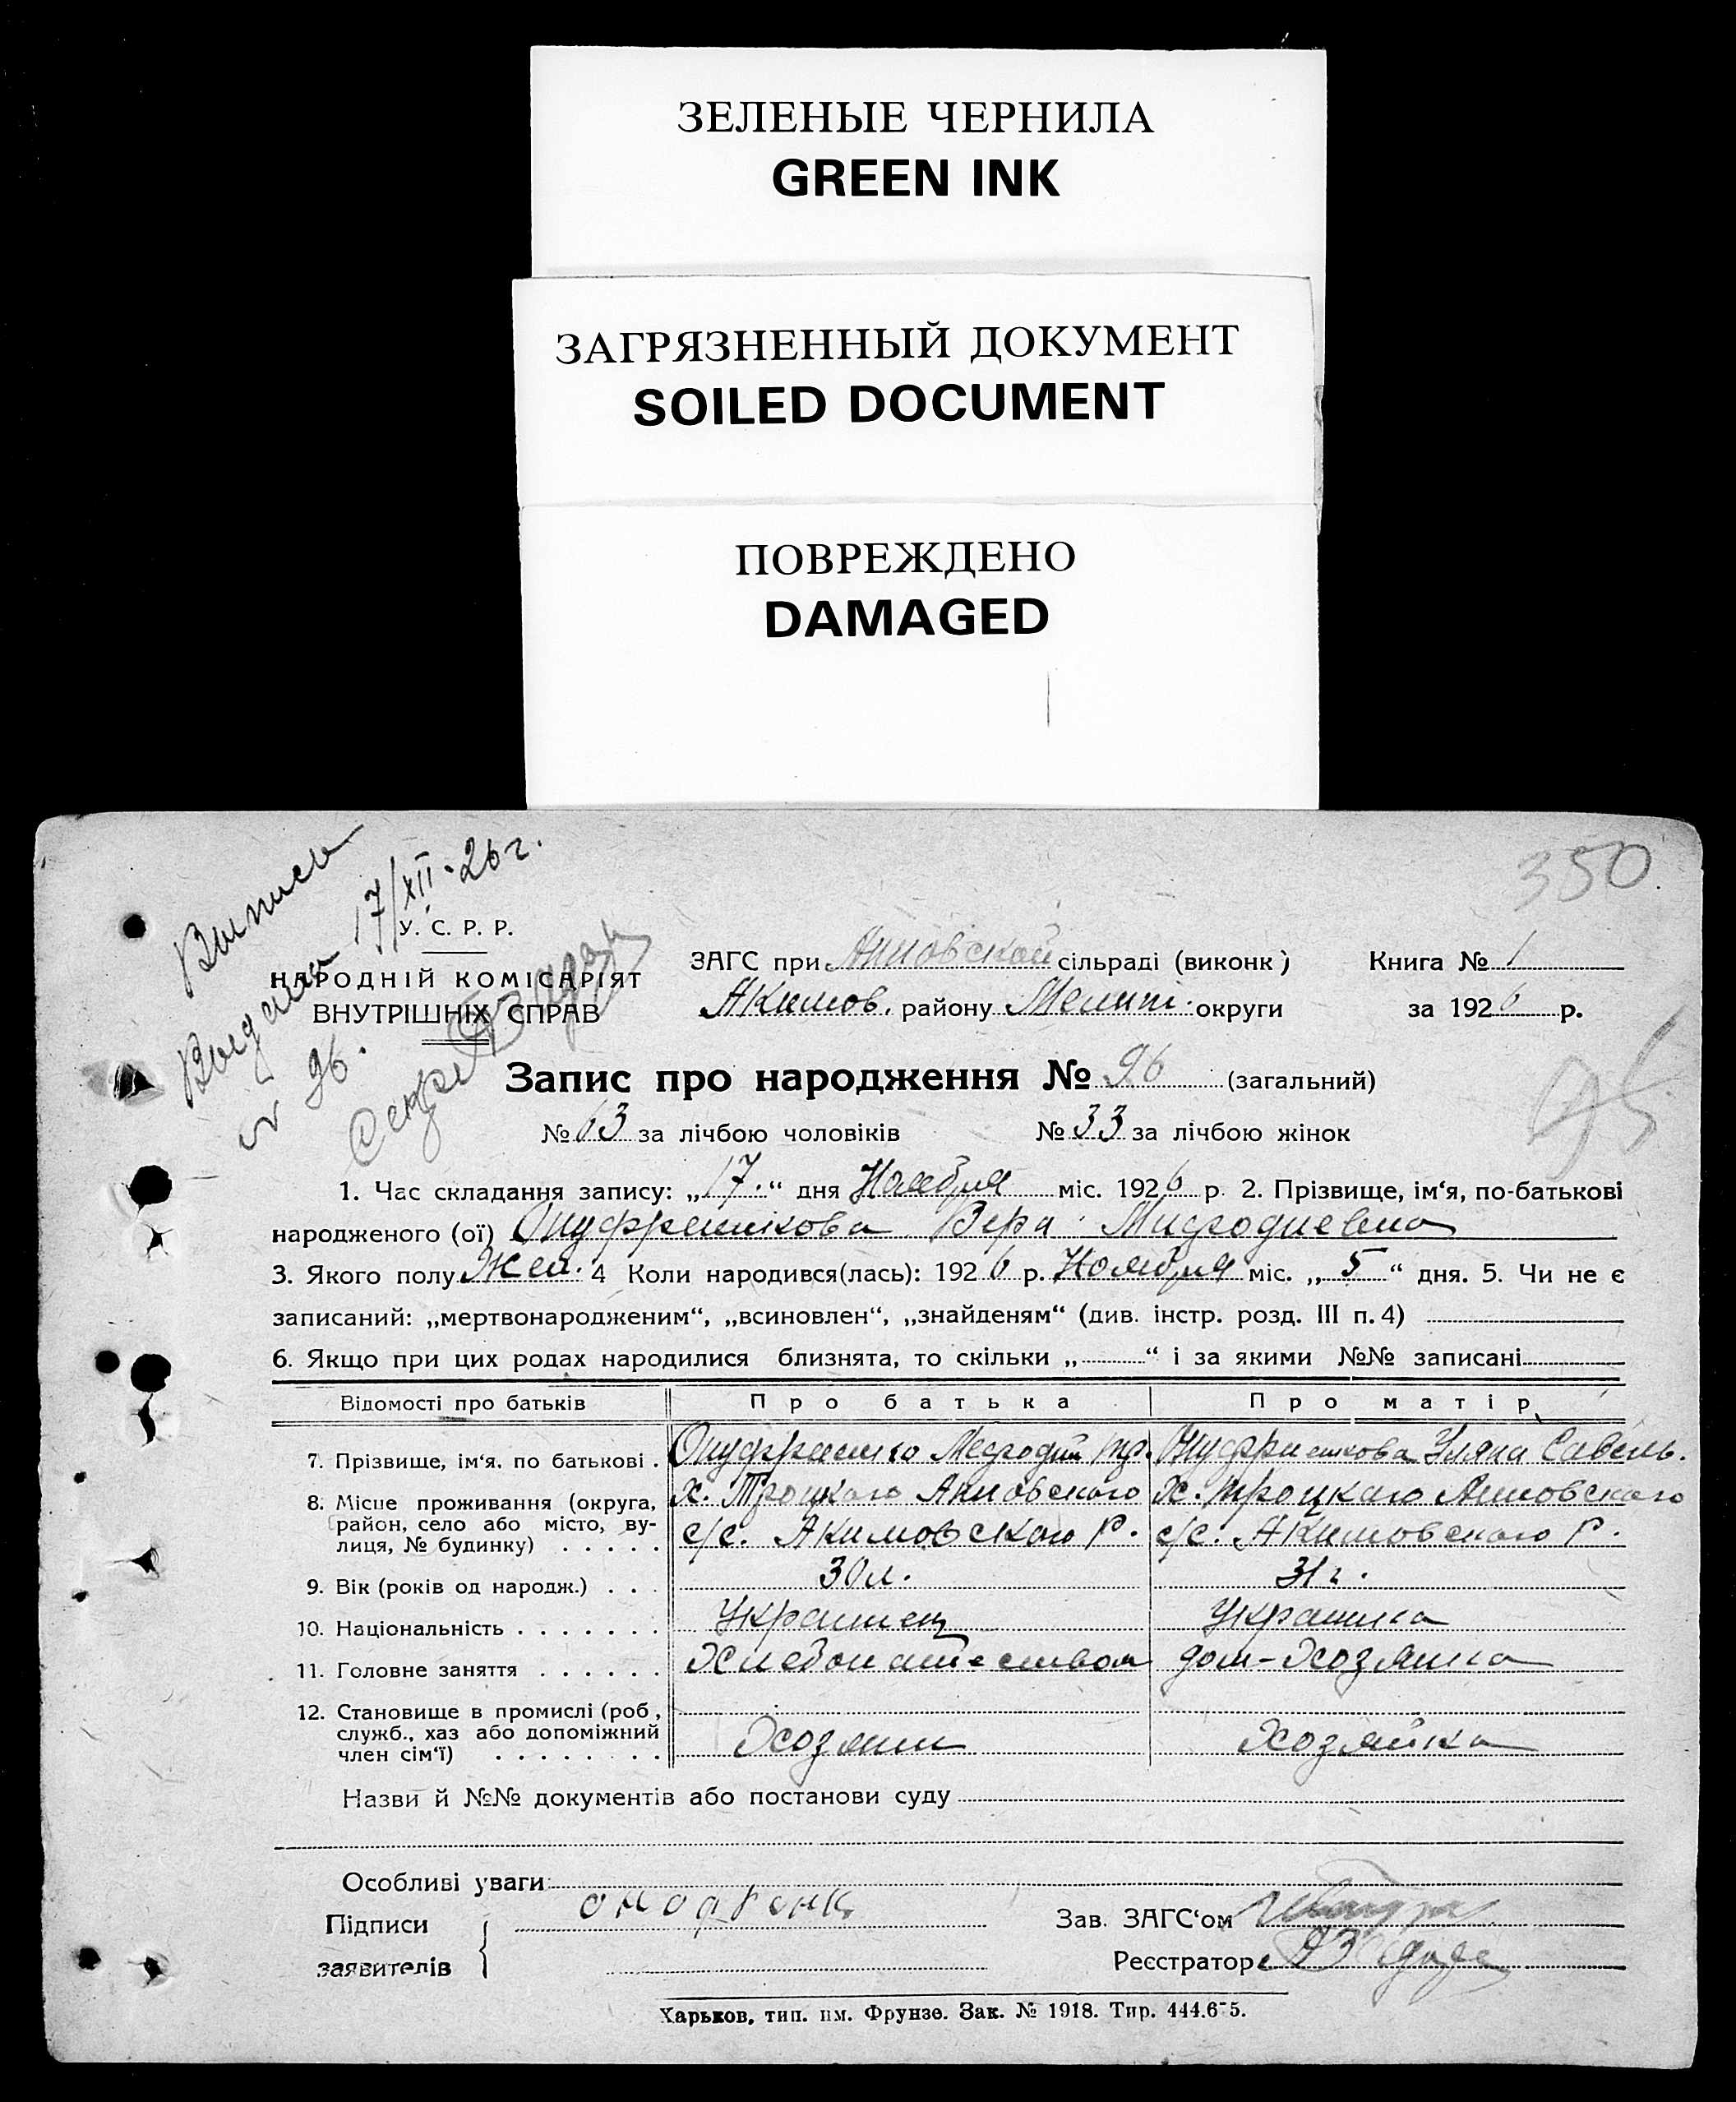 ЗЕЛЕНЫЕ ЧЕРНИЛА
GREEN INK
ЗАГРЯЗНЕННЫЙ ДОКУМЕНТ
SOILED DOCUMENT
ПОВРЕЖДЕНО
DAMAGED
350
Выпись
Выдана 17/XII-26 г.
№ 96.
У. С. Р. Р.
НАРОДНІЙ КОМІСАРІЯТ
ВНУТРІШНІХ СПРАВ
ЗАГС при Анновской сільраді (виконк) Книга № 1
Акимов. району Мелит. округи за 1926 р.
Запис про народження № 96 (загальний)
№ 63 за лічбою чоловіків № 33 за лічбою жінок
1. Час складання запису: „17.“ дня Ноября міс. 1926 р. 2. Прізвище, ім‘я, по-батькові
народженого (ої) Онуфриенкова Вера Мифодиевна
3. Якого полу Жен. 4 Коли народився(лась): 1926 р. Ноября міс. „5“ дня. 5. Чи не є
записаний: „мертвонародженим“, „всиновлен“, „знайденям“ (див. інстр. розд. III п. 4)
6. Якщо при цих родах народилися близнята, то скільки „ “ і за якими №№ записані
Відомості про батьків Про батька Про матір
7. Прізвище, ім‘я, по батькові . Онуфриенко Мефодий Онуфриенкова Уляна Савель.
8. Місце проживання (округа, х. Троцкого Анновского х. Троцкаго Анновскаго
район, село або місто, ву- с/с. Акимовского р. с/с. Акимовского р.
лиця, № будинку) . . . . .
9. Вік (років од народж.) . . . 30 л. 31 г.
10. Національність . . . . . . . Украинец Украинка
11. Головне заняття . . . . . . Хлебопашеством дом-хозяйка
12. Становище в промислі (роб,
служб., хаз або допоміжний Хозяин Хозяйка
член сім‘ї) . . . . . . . .
Назви й №№ документів або постанови суду
Особливі уваги:
Підписи
заявителів
Зав. ЗАГС‘ом
Реєстратор
Харьков, тип. им. Фрунзе. Зак. № 1918. Тир. 444.675.